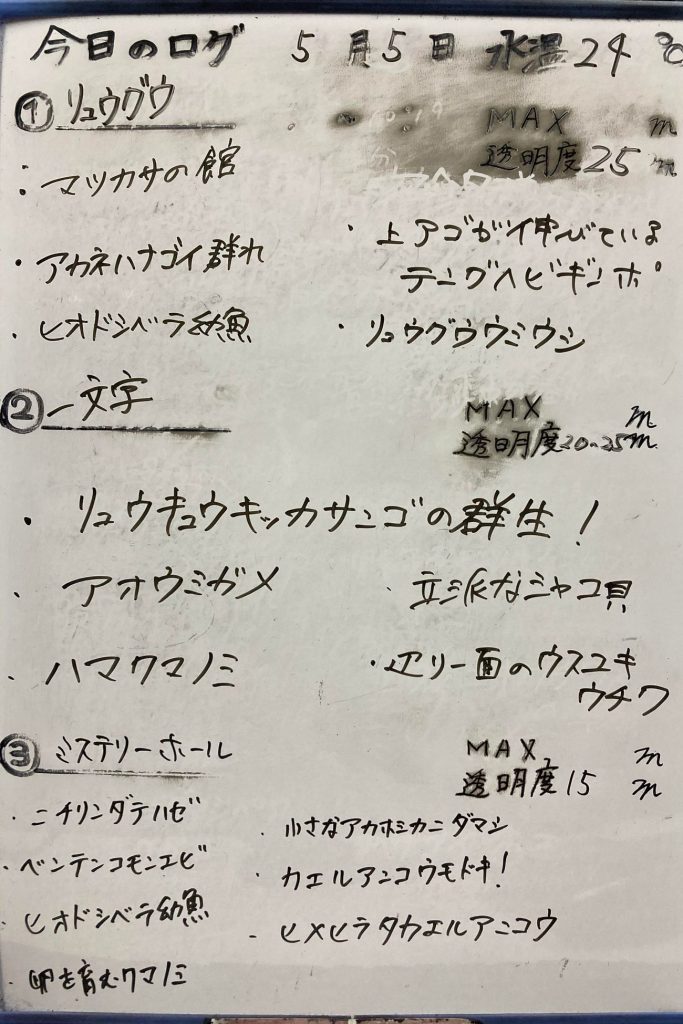 今日のログ 5月5日 水温24℃
① リュウグウ
MAX m
透明度25m
・マツカサの館
・アカネハナゴイ群れ
・ヒオドシベラ幼魚
・上アゴが伸びている
テングヘビギンポ
・リュウグウウミウシ
② 一文字
MAX m
透明度20~25m
・リュウキュウキッカサンゴの群生!
・アオウミガメ
・ハマクマノミ
・立派なシャコ貝
・辺り一面のウスユキ
ウチワ
③ ミステリーホール
MAX m
透明度15m
・ニチリンダテハゼ
・ベンテンコモンエビ
・ヒオドシベラ幼魚
・卵を育むクマノミ
・小さなアカホシカニダマシ
・カエルアンコウモドキ!
・ヒメヒラタカエルアンコウ